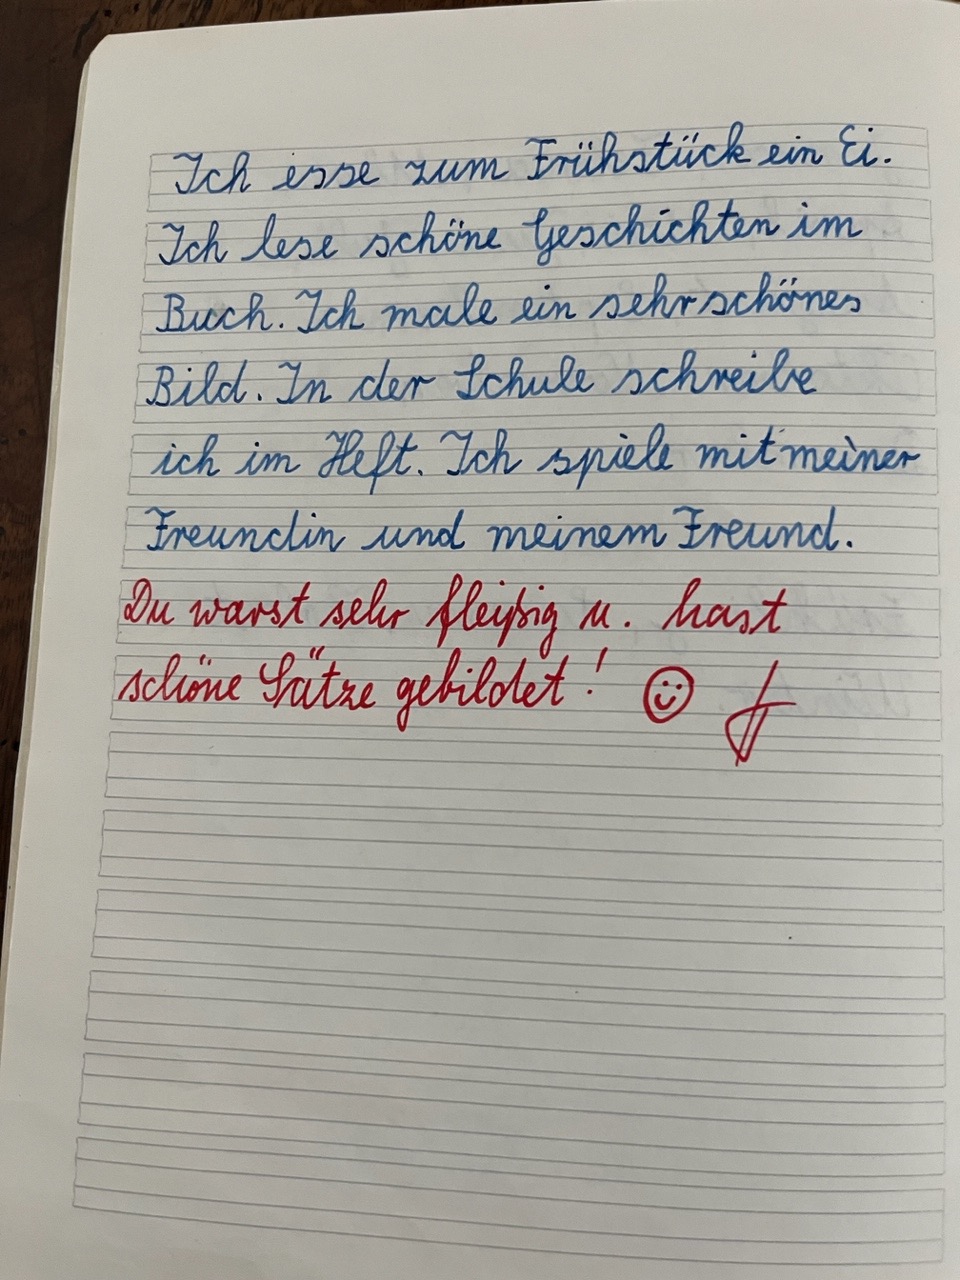 Ich esse zum Frühstück ein Ei.
Ich lese schöne Geschichten im
Buch. Ich male ein sehr schönes
Bild. In der Schule schreibe
ich im Heft. Ich spiele mit meiner
Freundin und meinem Freund.
Du warst sehr fleißig u. hast
schöne Sätze gebildet!